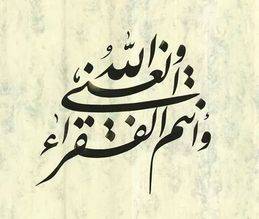 والله الغنی
وأنتم الفقراء